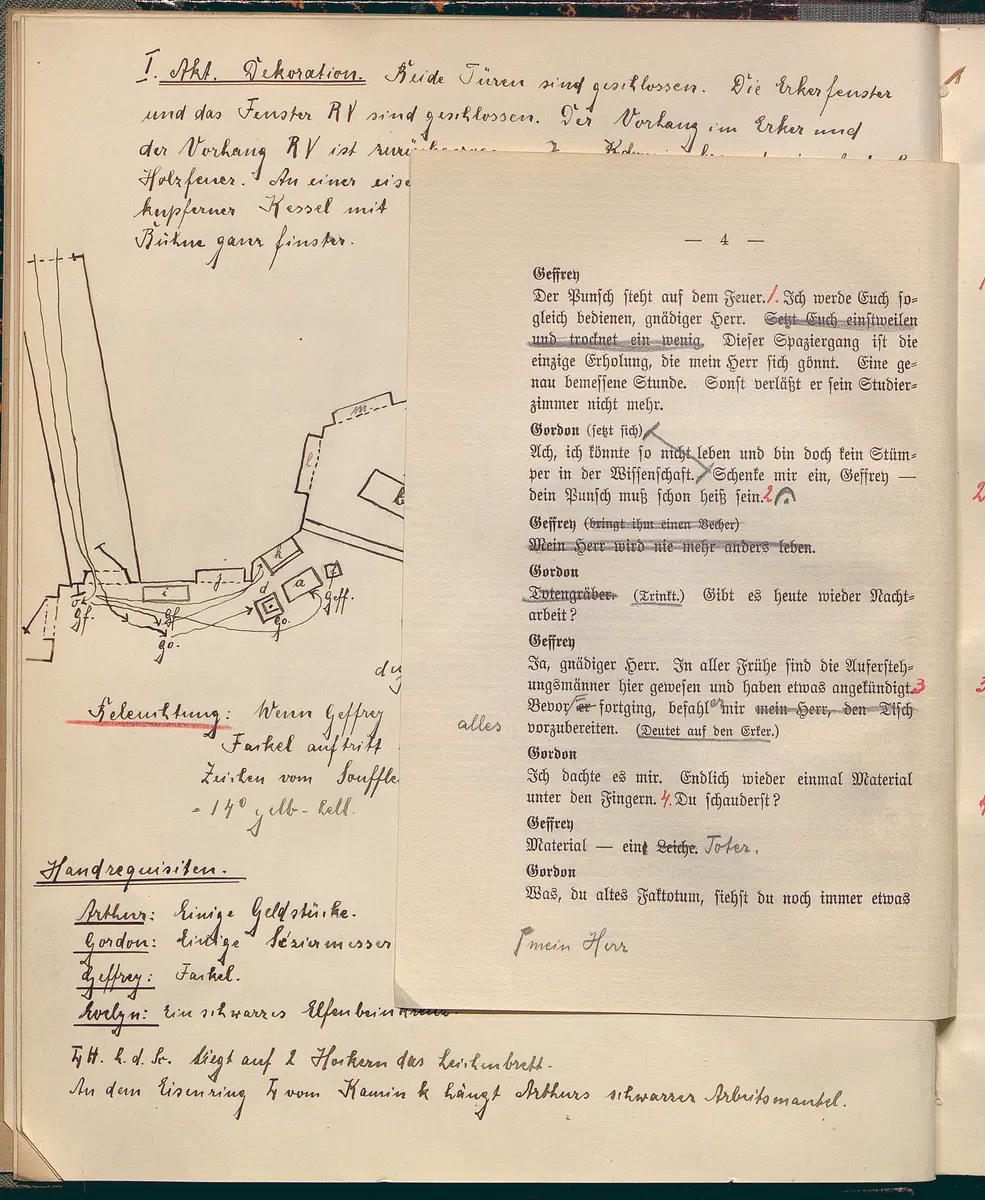 I. Akt. Dekoration. Beide Türen sind geschlossen. Die Erkerfenster
und das Fenster RV sind geschlossen. Der Vorhang im Erker und
der Vorhang RV ist
Holzfeuer. An einer eise
kupferner Kessel mit
Bühne ganz finster.
m
l
k
j
i
a
d
z
gf.
gf
go.
go.
geff.
Beleuchtung: Wenn Geffrey
Fackel auftritt
Zeichen vom Souffle
= 14° gelb-hell.
Handrequisiten.
Arthur: Einige Geldstücke.
Gordon: Einige Seziermesser
Geffrey: Fackel.
Evelyn: Ein schwarzes Elfenbeinkreuz.
H. h. d. Sc. liegt auf 2 Hockern das Leichenbrett.
An dem Eisenring vom Kamin k hängt Arthurs schwarzer Arbeitsmantel.
— 4 —
Geffrey
Der Punsch steht auf dem Feuer. 1. Ich werde Euch so-
gleich bedienen, gnädiger Herr. Setzt Euch einstweilen
und trocknet ein wenig. Dieser Spaziergang ist die
einzige Erholung, die mein Herr sich gönnt. Eine ge-
nau bemessene Stunde. Sonst verläßt er sein Studier-
zimmer nicht mehr.
Gordon (setzt sich)
Ach, ich könnte so nicht leben und bin doch kein Stüm-
per in der Wissenschaft. Schenke mir ein, Geffrey —
dein Punsch muß schon heiß sein. 2
Geffrey (bringt ihm einen Becher)
Mein Herr wird nie mehr anders leben.
Gordon
Totengräber. (Trinkt.) Gibt es heute wieder Nacht-
arbeit?
Geffrey
Ja, gnädiger Herr. In aller Frühe sind die Aufersteh-
ungsmänner hier gewesen und haben etwas angekündigt. 3
Bevor er fortging, befahl er mir mein Herr, den Tisch
alles vorzubereiten. (Deutet auf den Erker.)
Gordon
Ich dachte es mir. Endlich wieder einmal Material
unter den Fingern. 4. Du schauderst?
Geffrey
Material — eine Leiche. Toter.
Gordon
Was, du altes Faktotum, siehst du noch immer etwas
mein Herr
1
2
3
4